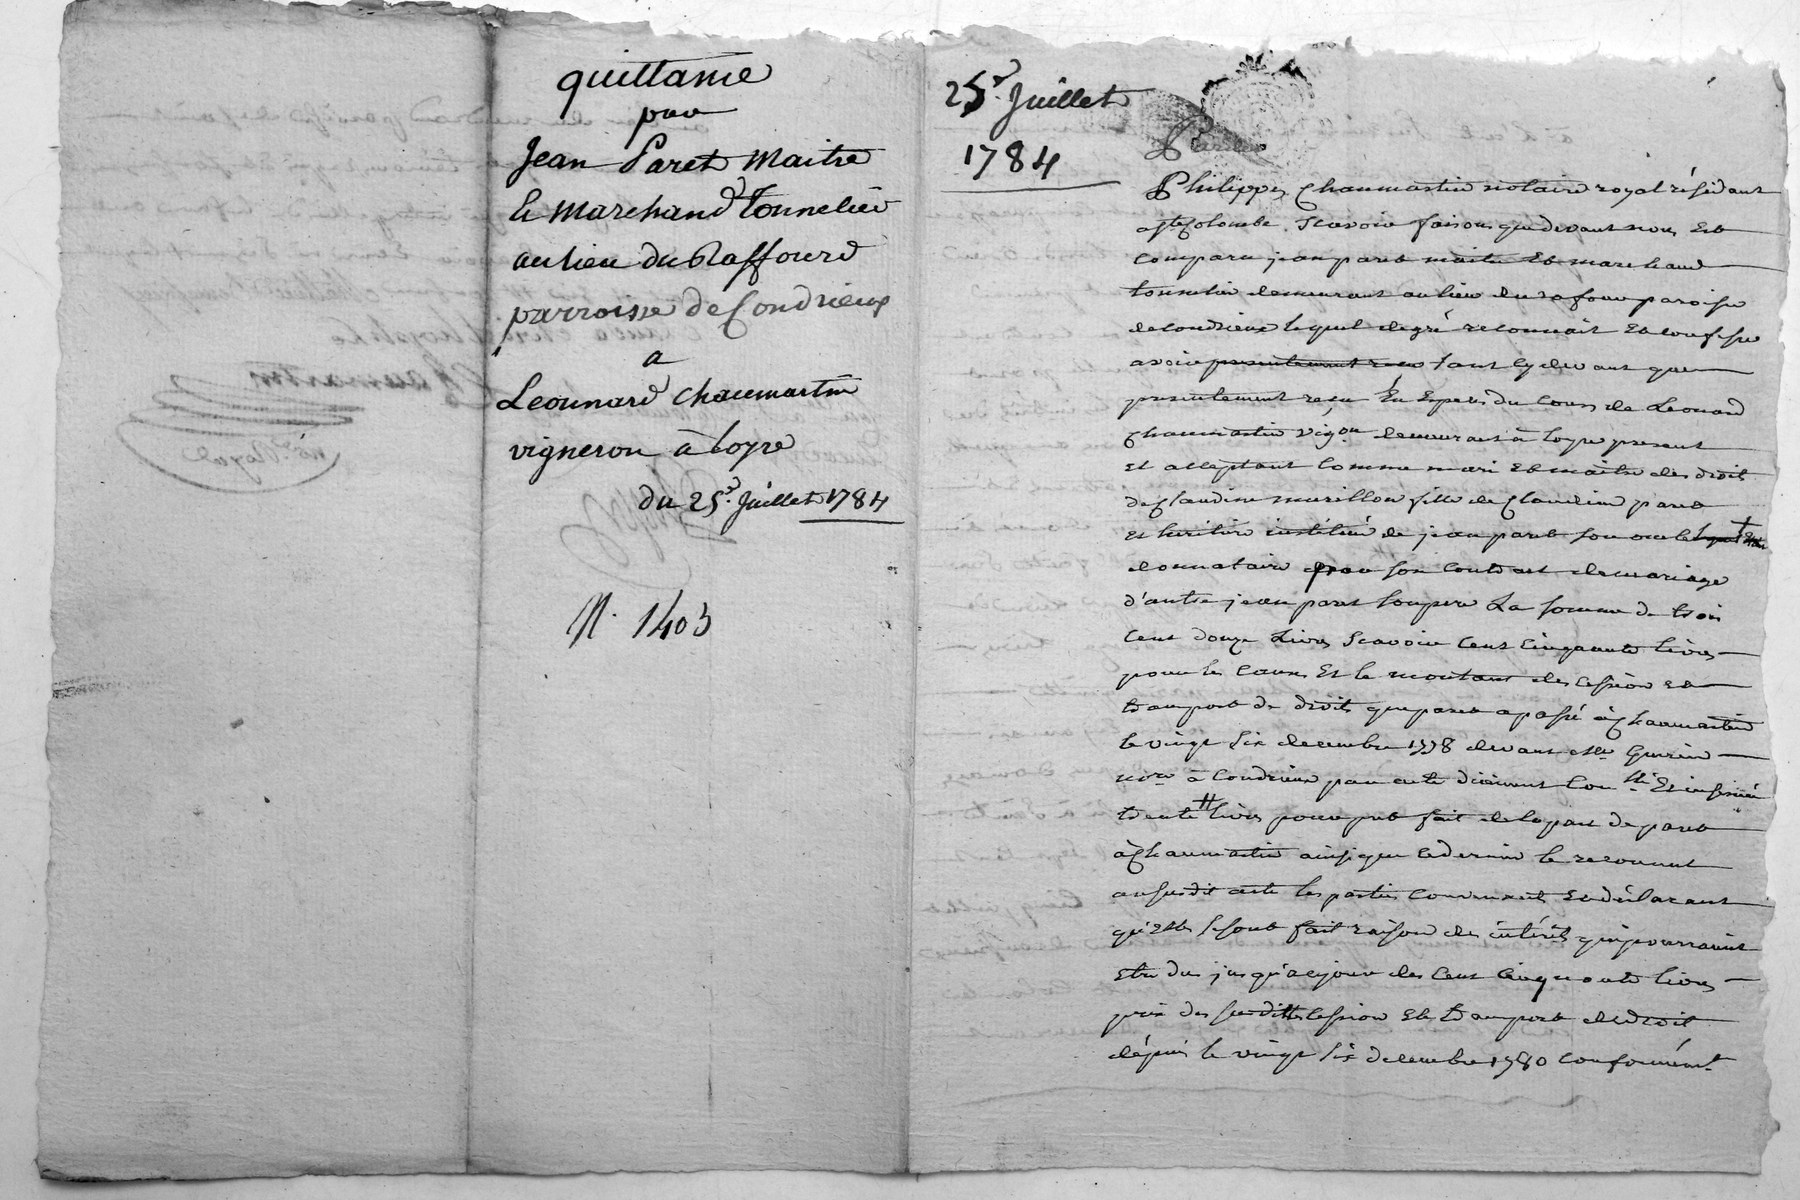 quittance
par
Jean Paret Maitre
et Marchand Tonnelier
au lieu du Raffourd
parroisse de Condrieux
a
Leonnard Chaumartin
vigneron à Loyre
du 25e. Juillet 1784
N. 1403
25e. Juillet
1784
Philippes Chaumartin notaire royal résidant
a ste Colombe. Scavoir faisons que devant nous Est
comparu jean paret maitre Et marchand
tonnelier demeurant au lieu du rafour paroisse
de condrieux lequel de gré reconnait Et confesse
avoir presentement receu tant cy devant que
presentement reçu En Especes du Cours de Leonard
Chaumartin vigon demeurant à Loyre present
Et acceptant comme mari Et maitre des droit
de Claudine murillon fille de Claudine paret
Et heritiere instituée de jean paret son oncle
donnataire par son contract de mariage
d'autre jean paret son pere La somme de trois
Cent douze Livres Scavoir Cent Cinquante livres
pour les causes Et le montant des cession Et
transport de droits que paret a passé à Chaumartin
le vingt Six decembre 1778 devant Me Guerin
nore à Condrieux par acte duement Con lé Et insinué
trente livres pour pret fait de la part de paret
à Chaumartin ainsi que ce dernier le reconnut
au susdit acte les parties convenant Et déclarant
qu'Elles se sont fait raison des intérêts qui pourraient
Etre dus jusqu'a ce jour des Cent Cinquante livres
prix des susdittes cession Et transport de droit
dépuis le vingt Six decembre 1780 conformémt